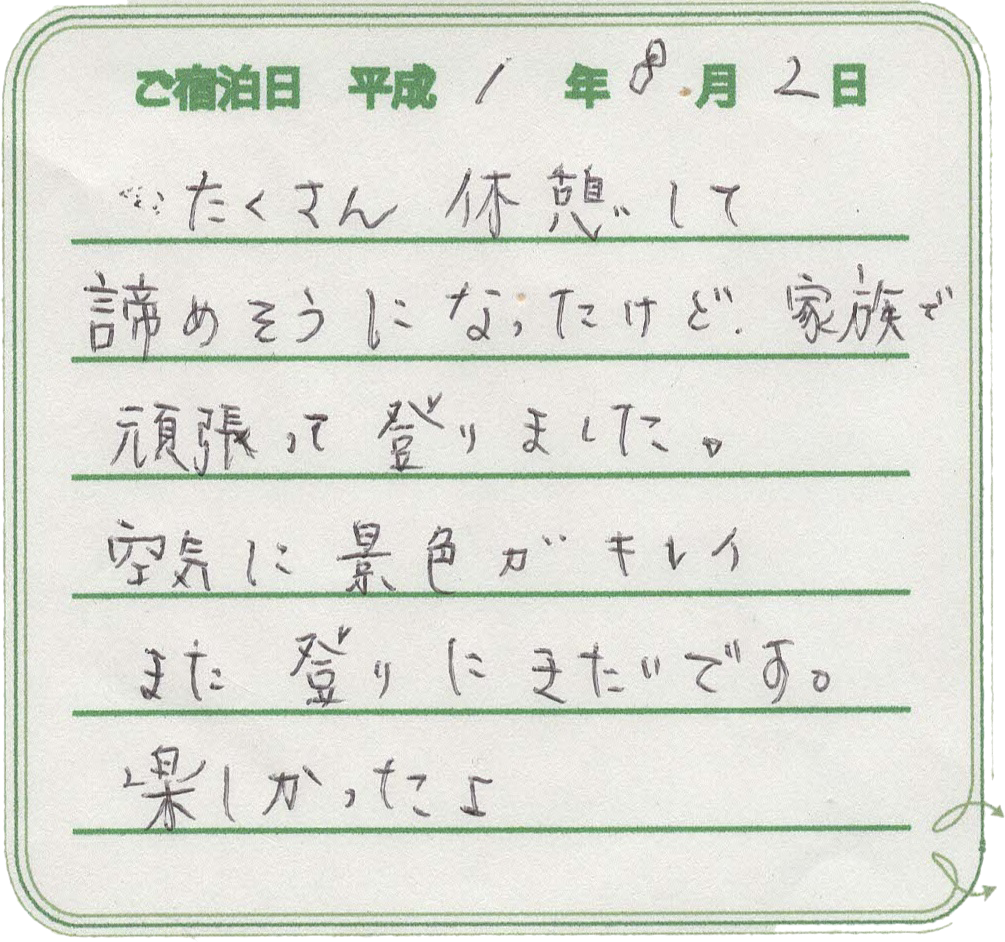 ご宿泊日 平成 1 年 8 月 2 日
たくさん 休憩して
諦めそうになったけど、家族で
頑張って登りました。
空気に景色がキレイ
また登りにきたいです。
楽しかったよ